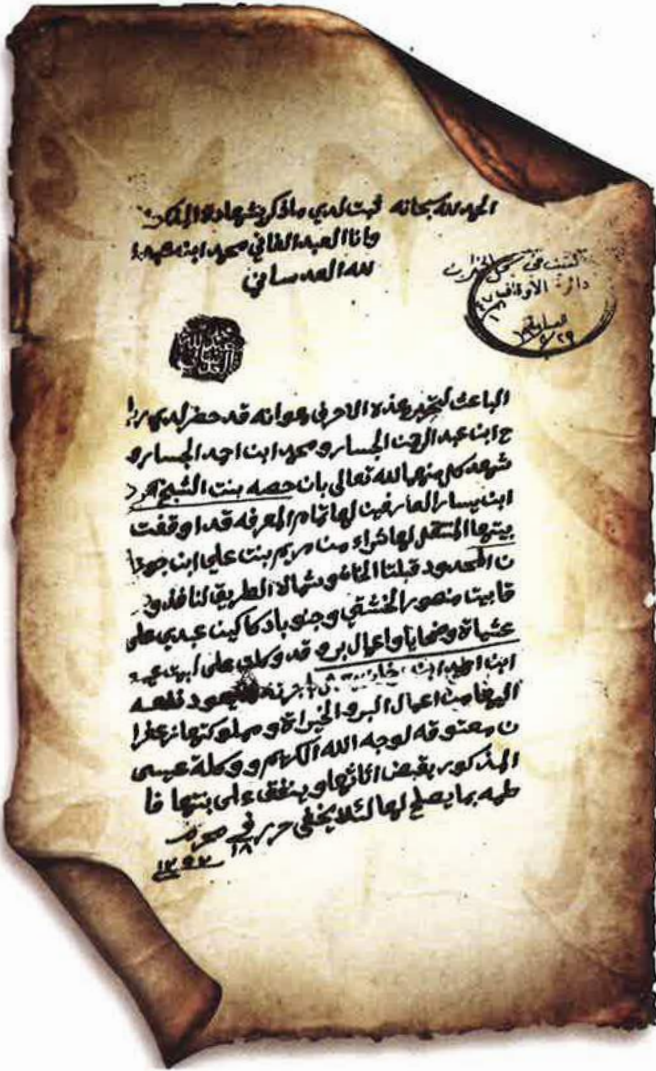 الحمد لله سبحانه ثبت لدي ما ذكر بشهادة المذكورين
وانا العبد الفاني محمد ابن عبد ا
لله العدساني
كتبت في سجل الخيرات
دائرة الاوقاف
الباعث لتحرير هذه الاحرف هو انه قد حضر لدي
ح ابن عبد الرحمن الجسار ومحمد ابن احمد الجسار و
شهد كل منهما لله تعالى بان حصه بنت الشيخ
ابن يسار العارفين لها تمام المعرفه قد اوقفت
بيتها المنتقل لها شراء من مريم بنت علي ابن
ن المحدود قبلتا الخان وشمالا الطريق النافذ و
قا بيت منصور الخشتي وجنوبا دكاكين عبدي على
عشياة وضحايا واعمال بر و قد وكلت على
ابن احمد ابن يعود نفعه
اليها من اعمال البر والخيراة ومملوكتها زعفرا
ن معتوقه لوجه الله الكريم ووكلة عيسى
المذكور بقبض اثاثها وينفق على بنتها فا
طمه بما يصلح لها لئلا يخفى حرر في محرم
١٨